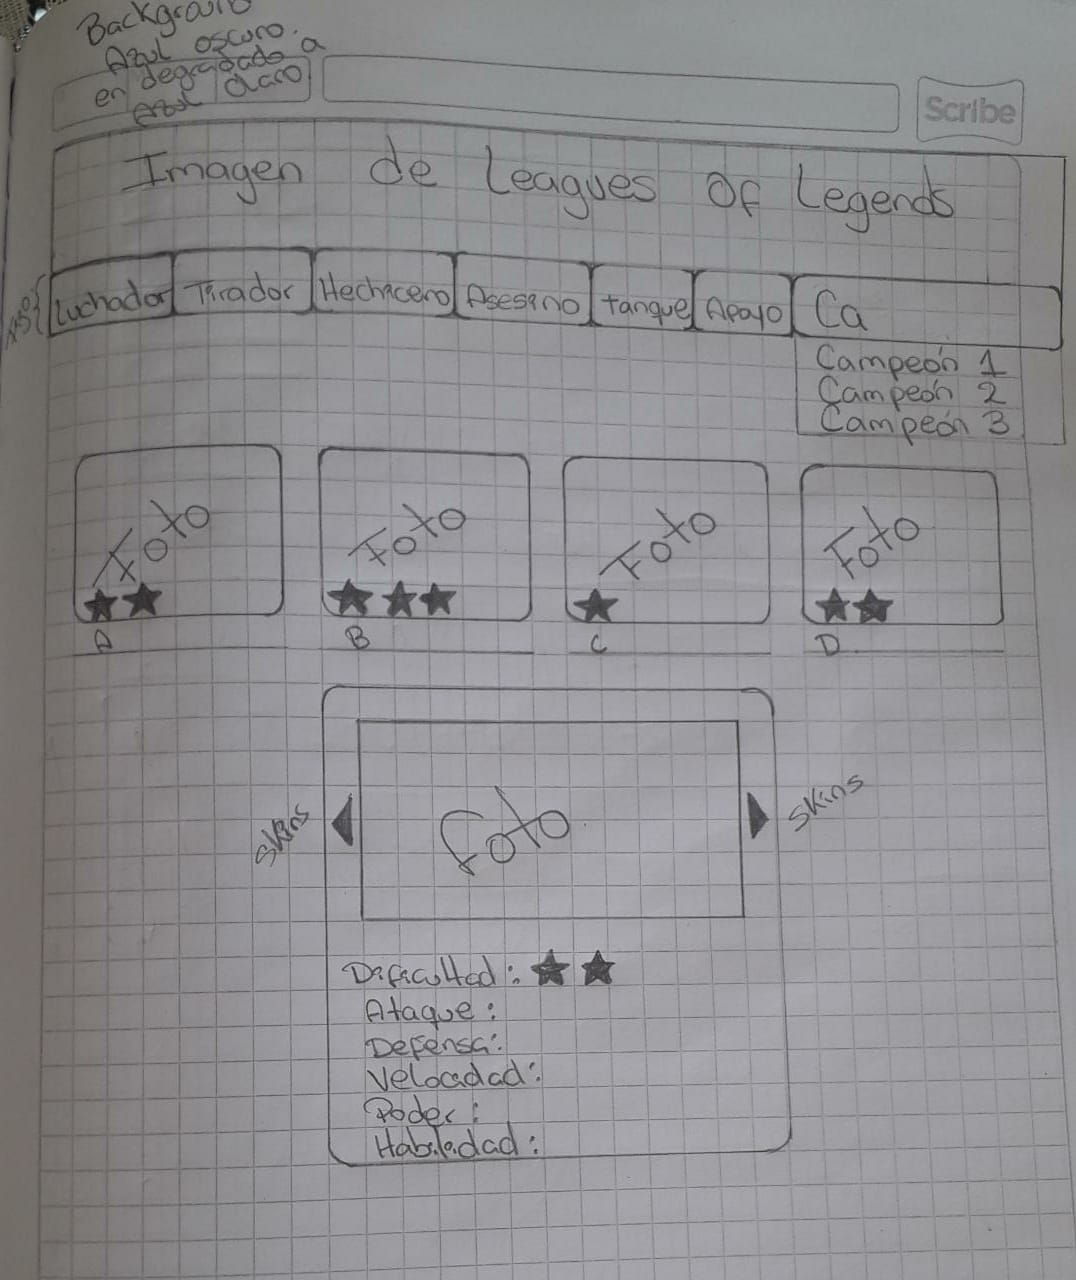 Background
Azul oscuro.
en degradado a
azul claro
Scribe
Imagen de Leagues Of Legends
Luchador Tirador Hechicero Asesino tanque Apoyo Ca
Campeón 1
Campeón 2
Campeón 3
Foto Foto Foto Foto
A B C D
Foto
Skins Skins
Dificultad:
Ataque:
Defensa:
Velocidad:
Poder:
Habilidad: